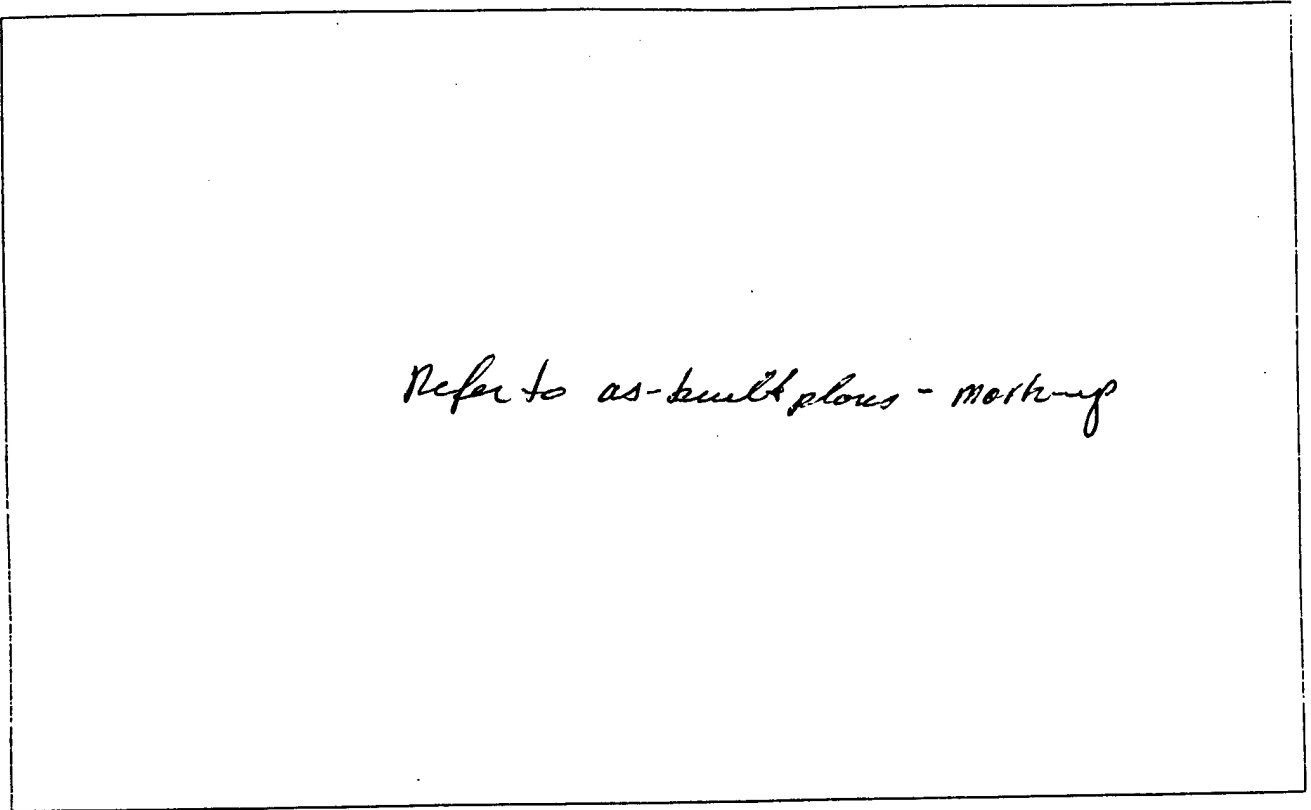 Refer to as-built plans - mark-up